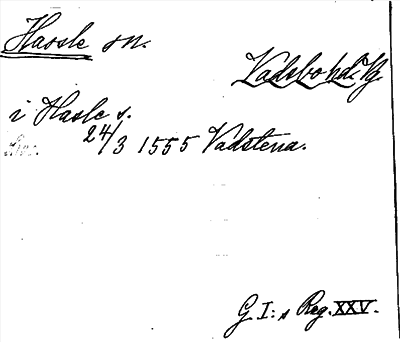 Hassle sn.
Vadsbo hd. Vg
i Hasle s.
24/3 1555 Vadstena.
G. I:s Reg. XXV.